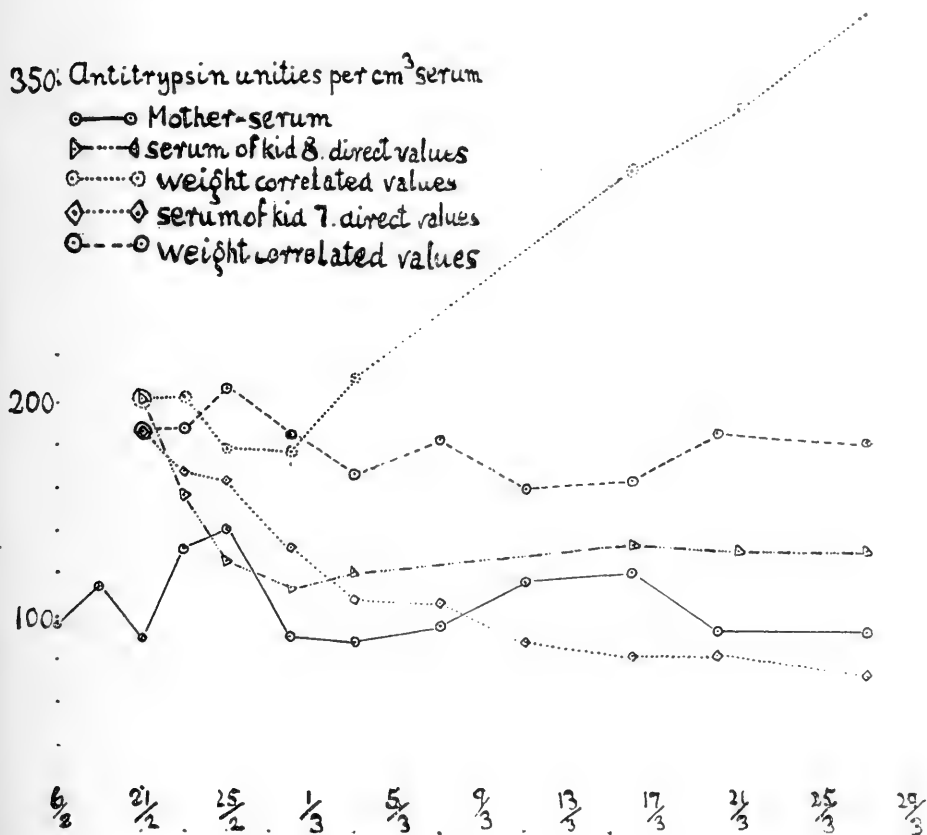 350: Antitrypsin unities per cm³ serum
Mother-serum
serum of kid 8. direct values
weight correlated values
serum of kid 7. direct values
weight correlated values
200
100
21/2 25/2 1/3 5/3 9/3 13/3 17/3 21/3 25/3 29/3